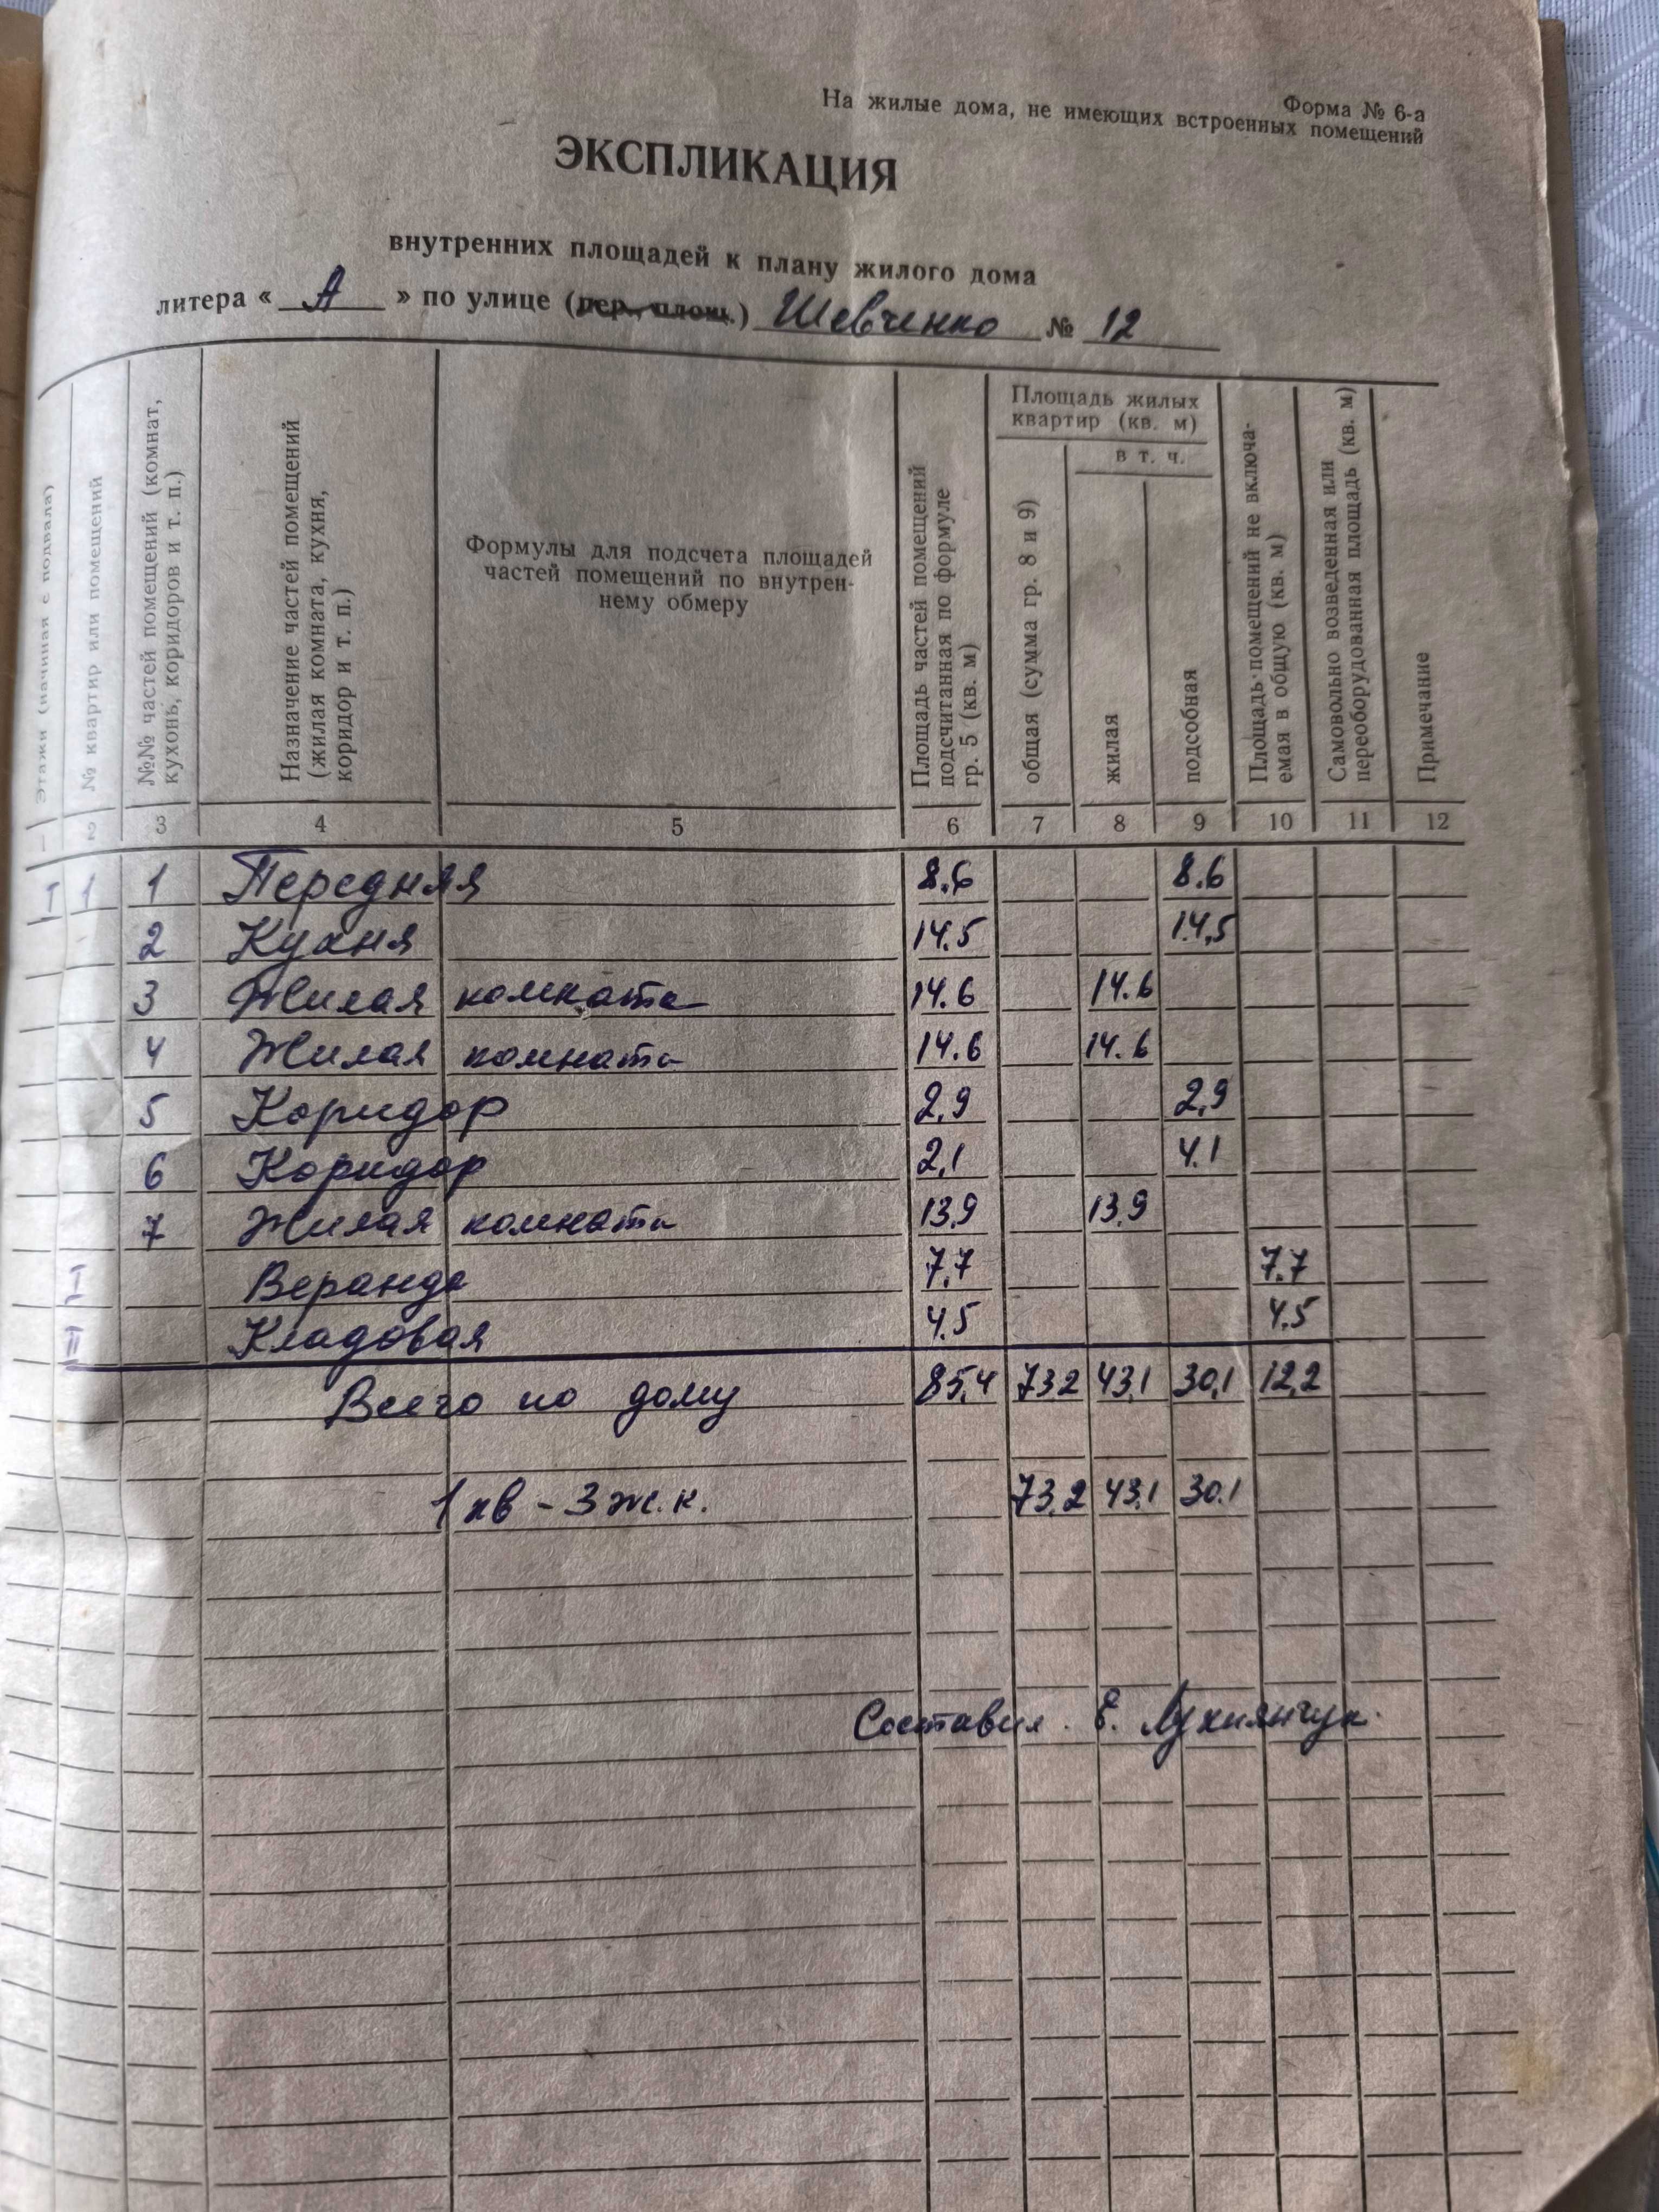 Форма № 6-а
На жилые дома, не имеющих встроенных помещений
ЭКСПЛИКАЦИЯ
внутренних площадей к плану жилого дома
литера « А » по улице (пер., площ.) Шевченко № 12
Этажи (начиная с подвала)
№ квартир или помещений
№№ частей помещений (комнат, кухонь, коридоров и т. п.)
Назначение частей помещений (жилая комната, кухня, коридор и т. п.)
Формулы для подсчета площадей
частей помещений по внутрен-
нему обмеру
Площадь частей помещений подсчитанная по формуле гр. 5 (кв. м)
Площадь жилых
квартир (кв. м)
в т. ч.
общая (сумма гр. 8 и 9)
жилая
подсобная
Площадь помещений не включа-
емая в общую (кв. м)
Самовольно возведенная или
переоборудованная площадь (кв. м)
Примечание
1 2 3 4 5 6 7 8 9 10 11 12
I 1 1 Передняя 8.6 8.6
2 Кухня 14.5 14,5
3 Жилая комната 14.6 14.6
4 Жилая комната 14.6 14.6
5 Коридор 2,9 2,9
6 Коридор 2,1 4.1
7 Жилая комната 13,9 13,9
I Веранда 7,7 7.7
II Кладовая 4.5 4.5
Всего по дому 85,4 73 2 43,1 30,1 12,2
1 кв - 3 ж.к. 73.2 43,1 30.1
Составил. Е. Лукиянчук.